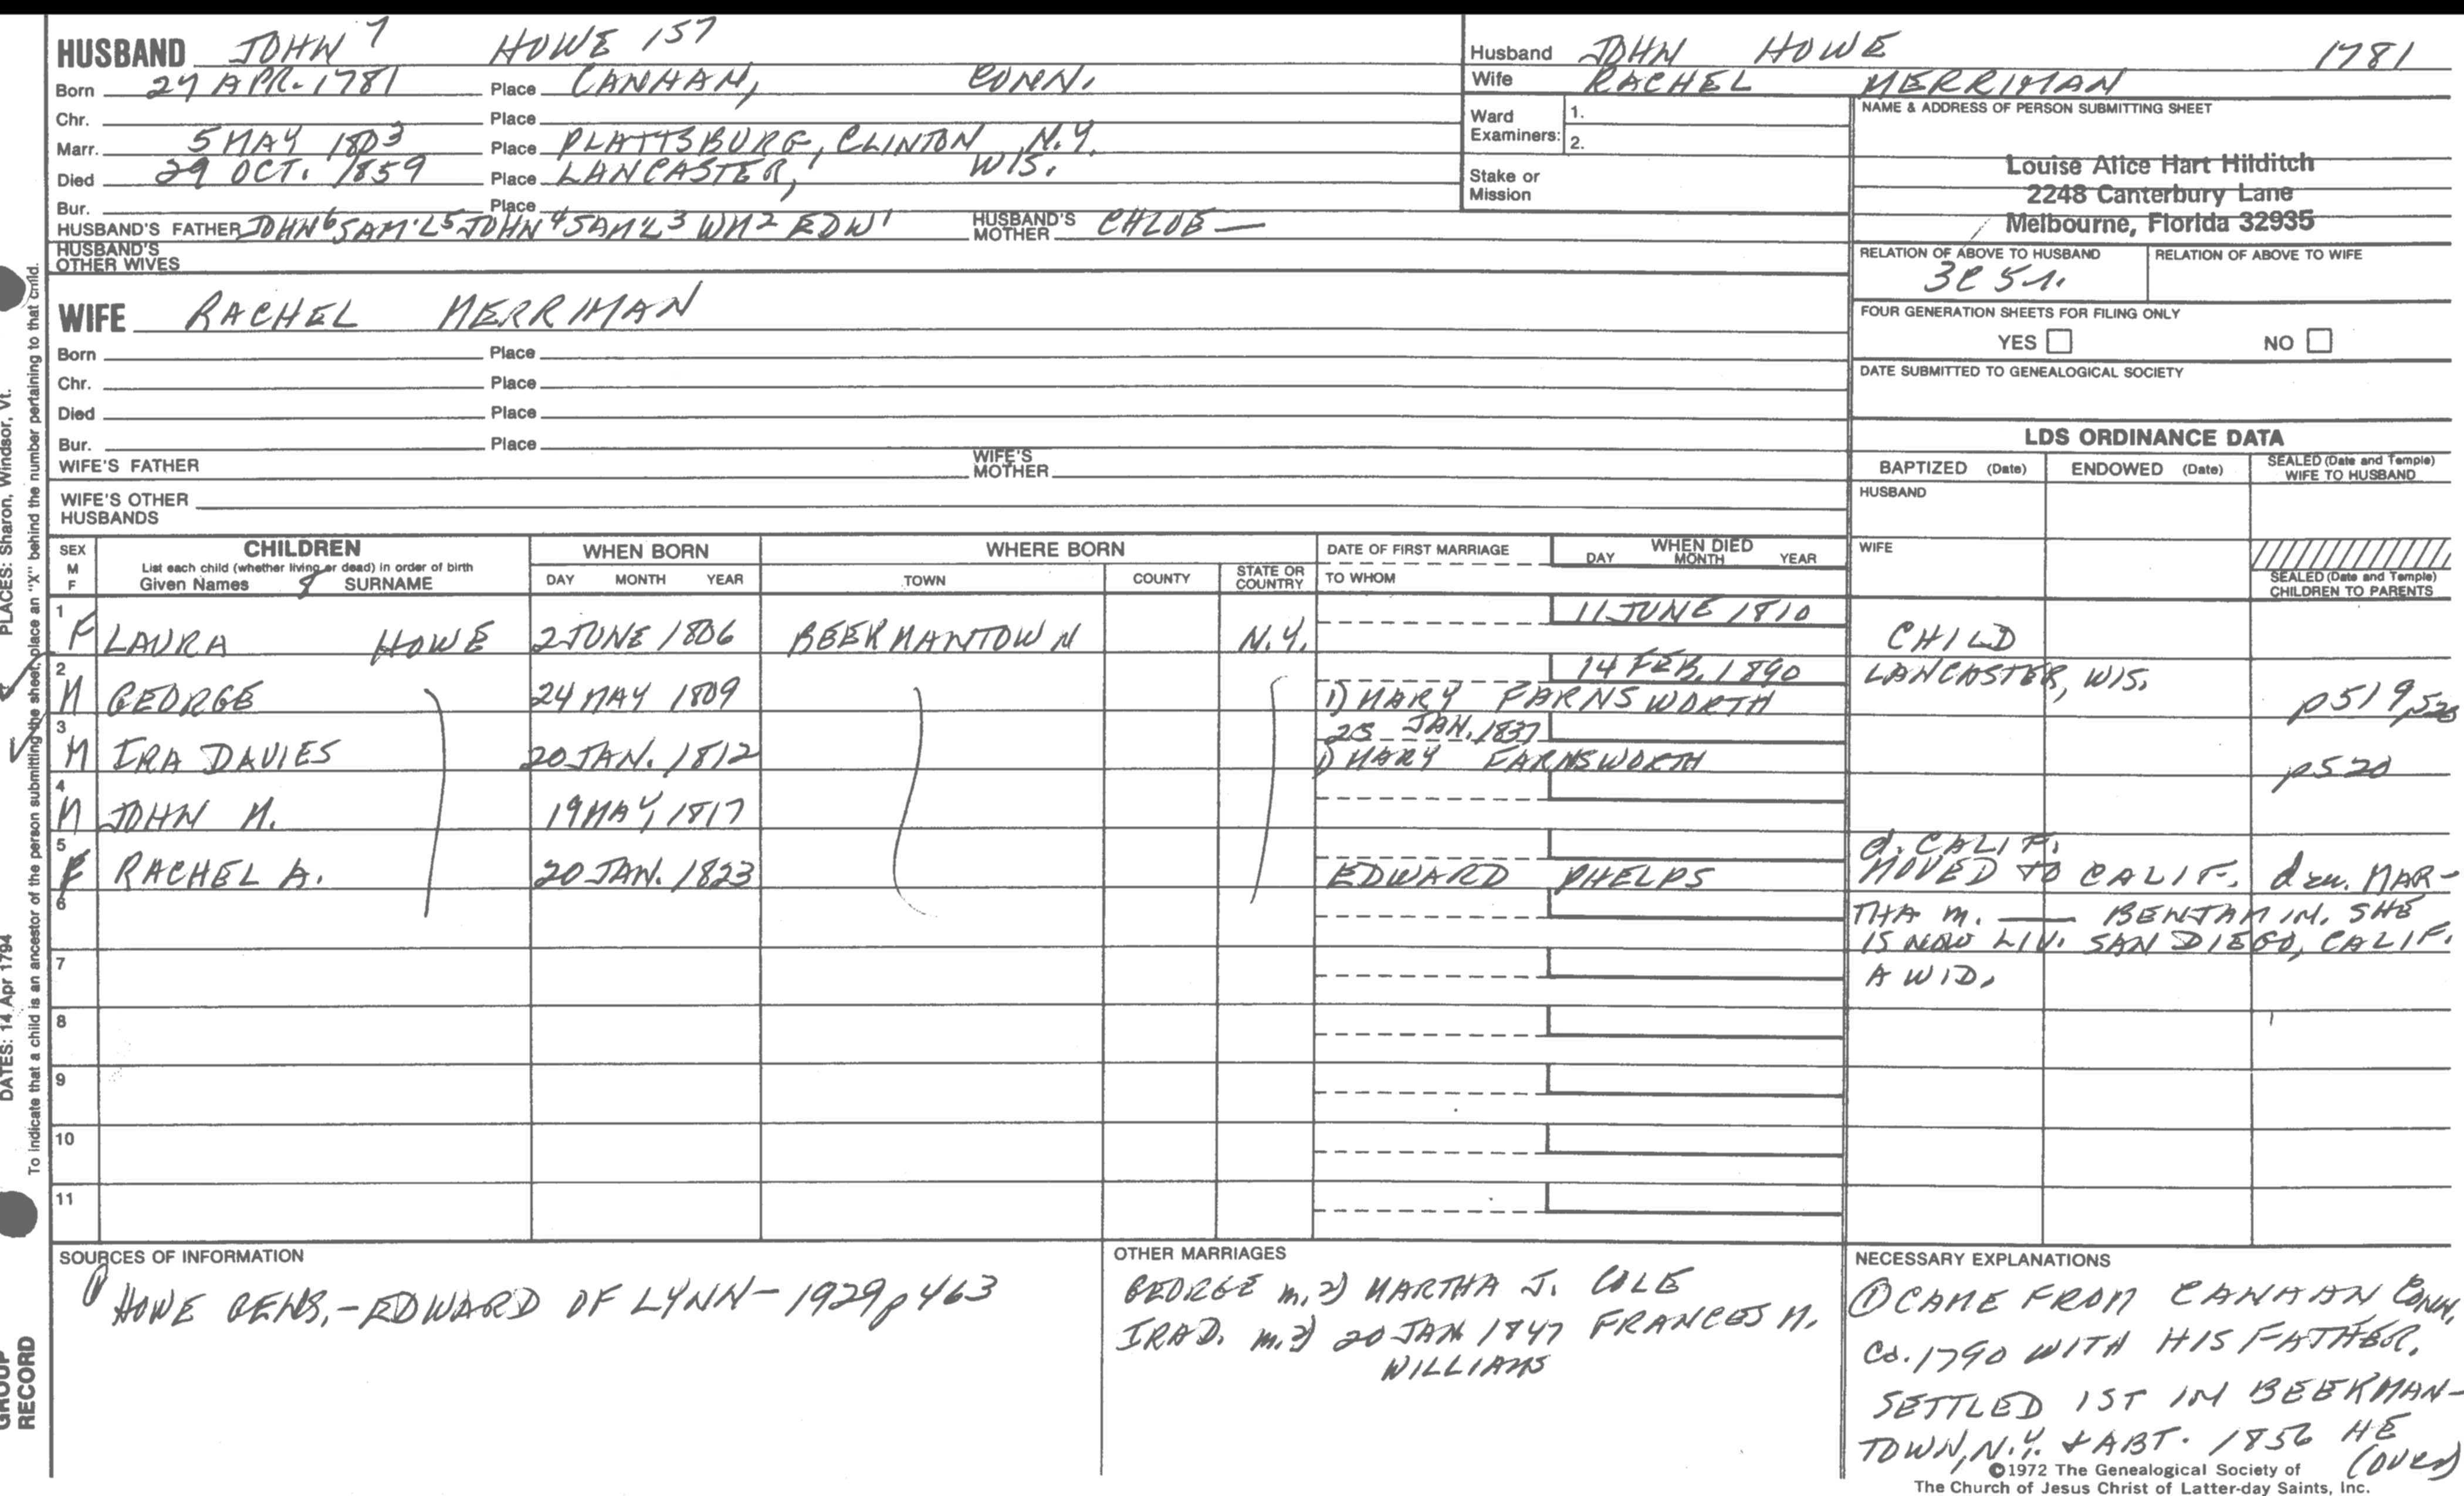 HUSBAND JOHN 7 HOWE 157
Born 27 APR. 1781 Place CANHAN, CONN.
Chr. Place
Marr. 5 MAY 1803 Place PLATTSBURG, CLINTON N.Y.
Died 29 OCT. 1859 Place LANCASTER, WIS.
Bur. Place
HUSBAND'S FATHER JOHN 6 SAM'L 5 JOHN 4 SAM'L 3 WM 2 EDW 1 HUSBAND'S MOTHER CHLOE —
HUSBAND'S OTHER WIVES
Husband JOHN HOWE 1781
Wife RACHEL MERRIMAN
Ward Examiners: 1.
2.
Stake or Mission
NAME & ADDRESS OF PERSON SUBMITTING SHEET
Louise Alice Hart Hilditch
2248 Canterbury Lane
Melbourne, Florida 32935
RELATION OF ABOVE TO HUSBAND RELATION OF ABOVE TO WIFE
FOUR GENERATION SHEETS FOR FILING ONLY
YES NO
DATE SUBMITTED TO GENEALOGICAL SOCIETY
WIFE RACHEL MERRIMAN
Born Place
Chr. Place
Died Place
Bur. Place
WIFE'S FATHER WIFE'S MOTHER
WIFE'S OTHER HUSBANDS
LDS ORDINANCE DATA
BAPTIZED (Date) ENDOWED (Date) SEALED (Date and Temple) WIFE TO HUSBAND
HUSBAND
WIFE
SEALED (Date and Temple) CHILDREN TO PARENTS
SEX M F CHILDREN WHEN BORN WHERE BORN DATE OF FIRST MARRIAGE WHEN DIED
List each child (whether living or dead) in order of birth DAY MONTH YEAR
Given Names 8 SURNAME DAY MONTH YEAR TOWN COUNTY STATE OR COUNTRY TO WHOM
1 F LAURA HOWE 2 JUNE 1806 BEEKMANTOWN N.Y. 11 JUNE 1810 CHILD
2 M GEORGE 24 MAY 1809 1) MARY FARNSWORTH 14 FEB. 1890 LANCASTER, WIS. p519, 520
3 M IRA DAVIES 20 JAN. 1812 25 JAN. 1837 1) MARY FARNSWORTH p520
4 M JOHN M. 19 MAY 1817
5 F RACHEL A. 20 JAN. 1823 EDWARD PHELPS d. CALIF.
MOVED TO CALIF. dau. MAR-
THA m. — BENJAMIN. SHE
IS NOW LIV. SAN DIEGO, CALIF.
A WID.
6
7
8
9
10
11
SOURCES OF INFORMATION
1 HOWE GENS. - EDWARD OF LYNN - 1929 p 463
OTHER MARRIAGES
GEORGE m. 2) MARTHA J. COLE
IRA D. m. 2) 20 JAN 1847 FRANCES M.
WILLIAMS
NECESSARY EXPLANATIONS
① CAME FROM CANAAN CONN.
Ca. 1790 WITH HIS FATHER.
SETTLED 1ST IN BEEKMAN-
TOWN, N.Y. & ABT. 1856 HE
(OVER)
©1972 The Genealogical Society of
The Church of Jesus Christ of Latter-day Saints, Inc.
To indicate that a child is an ancestor of the person submitting the sheet, place an "X" behind the number pertaining to that child.
DATES: 14 Apr 1794 PLACES: Sharon, Windsor, Vt.
GROUP
RECORD